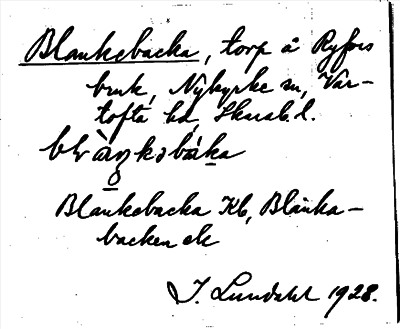 Blankebacka, torp å Ryfors
bruk, Nykyrke sn, Var-
tofta hd, Skarab.l.
Blankebacka Kb, Blanka-
backen ek
I. Lundahl 1928.